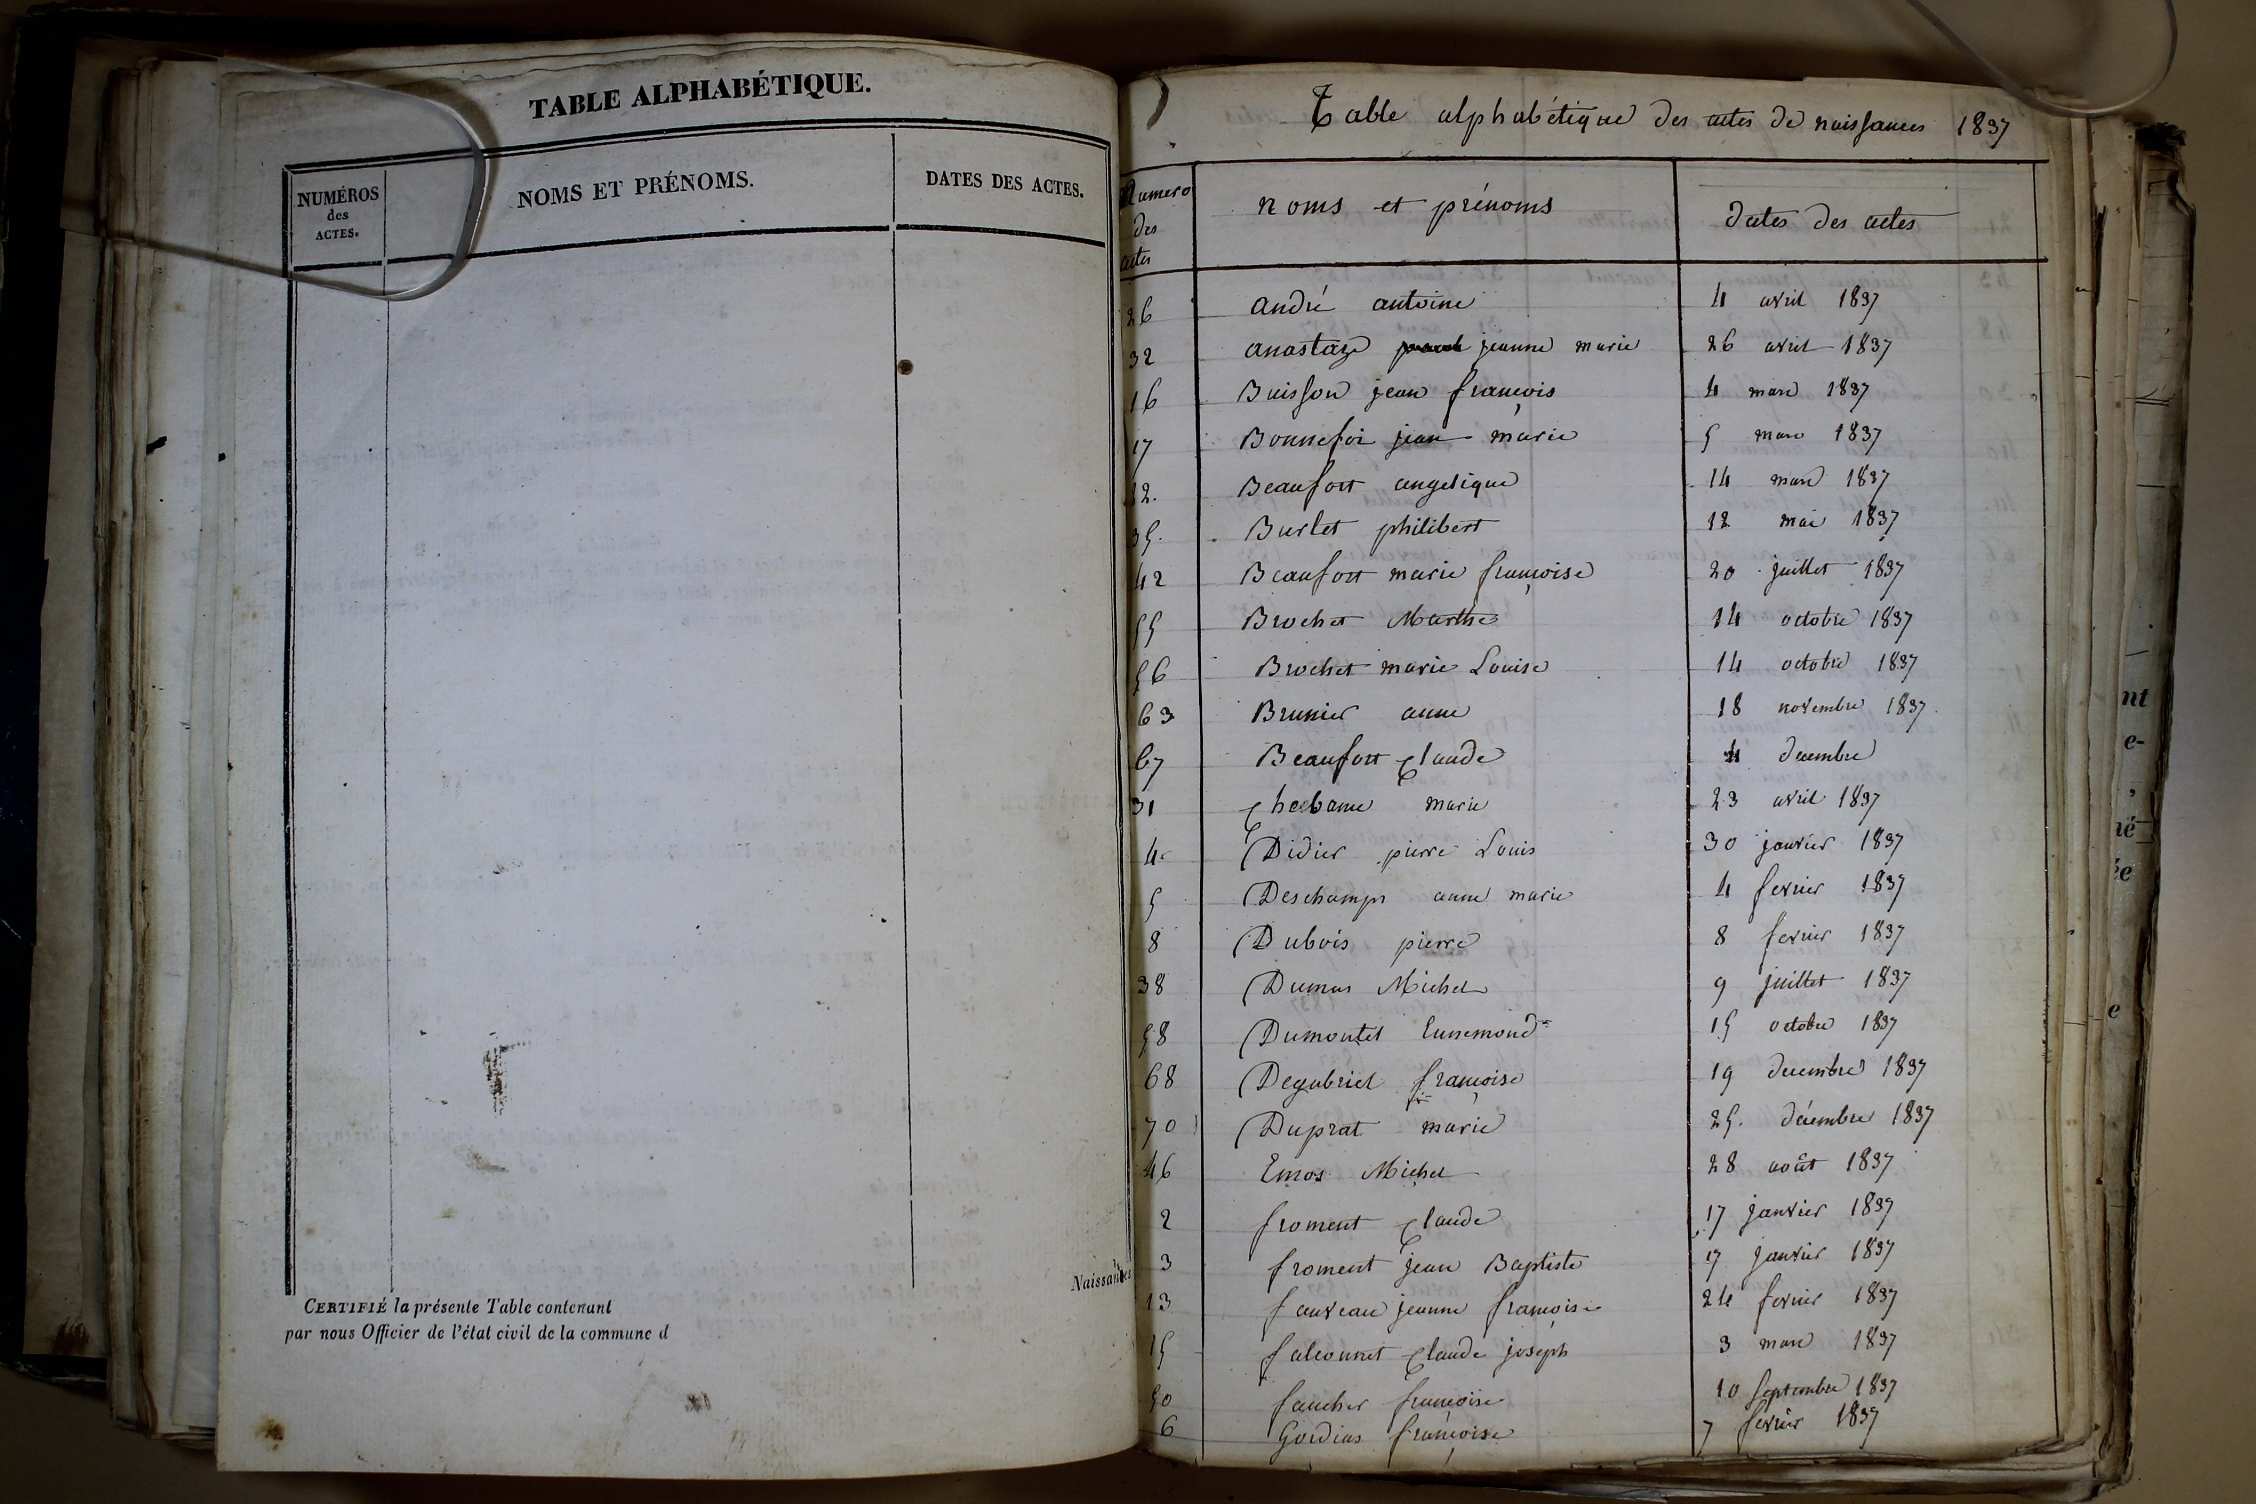 TABLE ALPHABÉTIQUE.
NUMÉROS
des
ACTES.
NOMS ET PRÉNOMS.
DATES DES ACTES.
Naissances
CERTIFIÉ la présente Table contenant
par nous Officier de l'état civil de la commune d
Table alphabétique des actes de naissances 1837
Numero
des
actes
noms et prénoms
dates des actes
26 andré antoine 4 avril 1837
32 anastaze jeanne marie 26 avril 1837
16 Buisson jean françois 4 mars 1837
17 Bonnefoi jean marie 5 mars 1837
12. Beaufort angelique 14 mars 1837
35. Burlet philibert 12 mai 1837
42 Beaufort marie françoise 20 juillet 1837
55 Brochet Marthe 14 octobre 1837
56 Brochet marie Louise 14 octobre 1837
63 Brunier anne 18 novembre 1837
67 Beaufort Claude 4 decembre
31 marie 23 avril 1837
4. Didier pierre Louis 30 janvier 1837
5 Deschamps anne marie 4 fevrier 1837
8 Dubois pierre 8 fevrier 1837
38 Dumas Michel 9 juillet 1837
58 Dumontet Ennemond 15 octobre 1837
68 Degabriel françoise 19 decembre 1837
70 Duprat marie 25. décembre 1837
46 Michel 28 août 1837
2 froment Claude 17 janvier 1837
3 froment jean Baptiste 17 janvier 1837
13 fauveau jeanne françoise 24 fevrier 1837
15 falconnet Claude joseph 3 mars 1837
50 faucher françoise 10 septembre 1837
6 françoise 7 fevrier 1837
nt
e-
,
né
ée
e